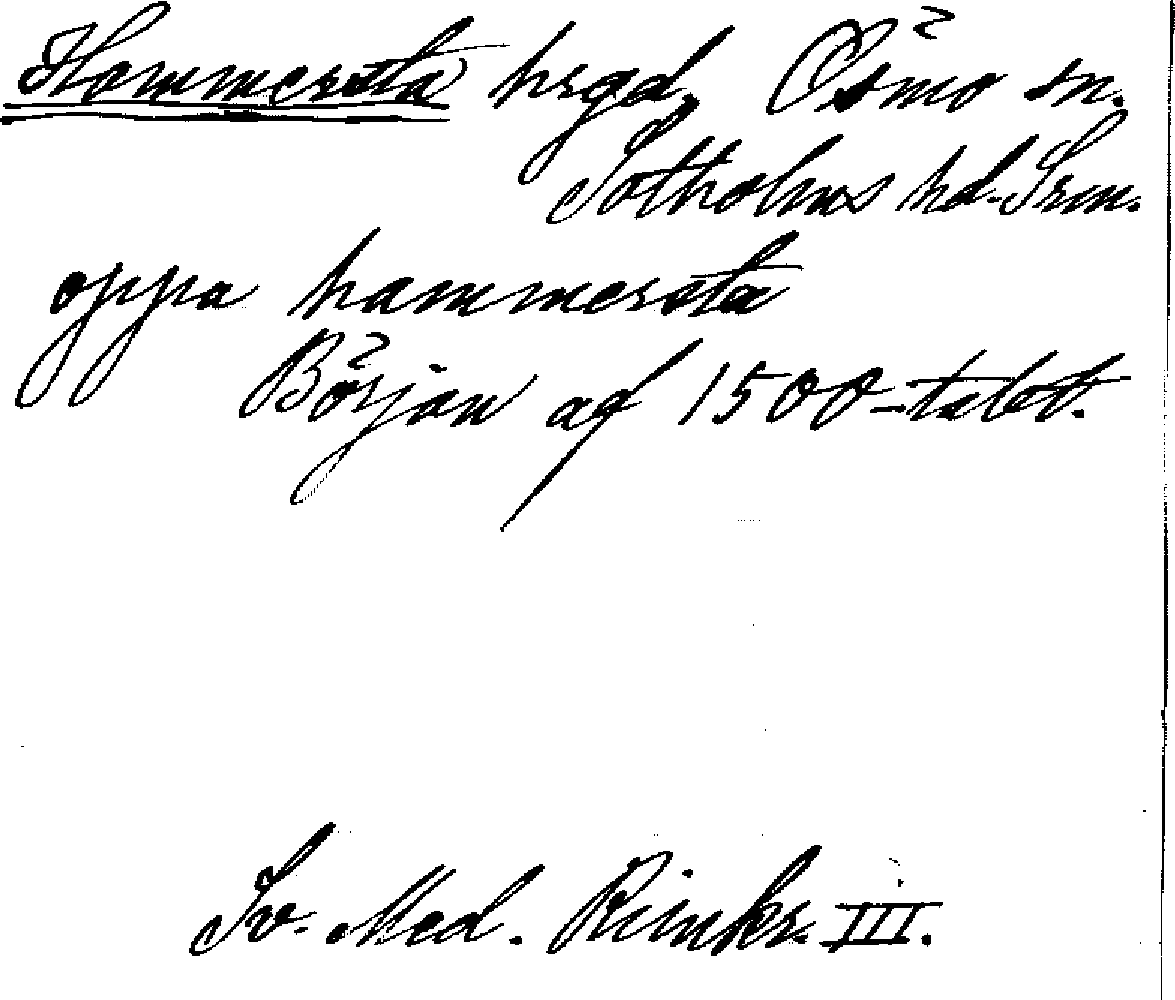 Hammersta hrgd, Ösmo sn.
Sotholms hd. Srm.
oppa hammersta
Början af 1500-talet.
Sv. Med. Rimkr. III.